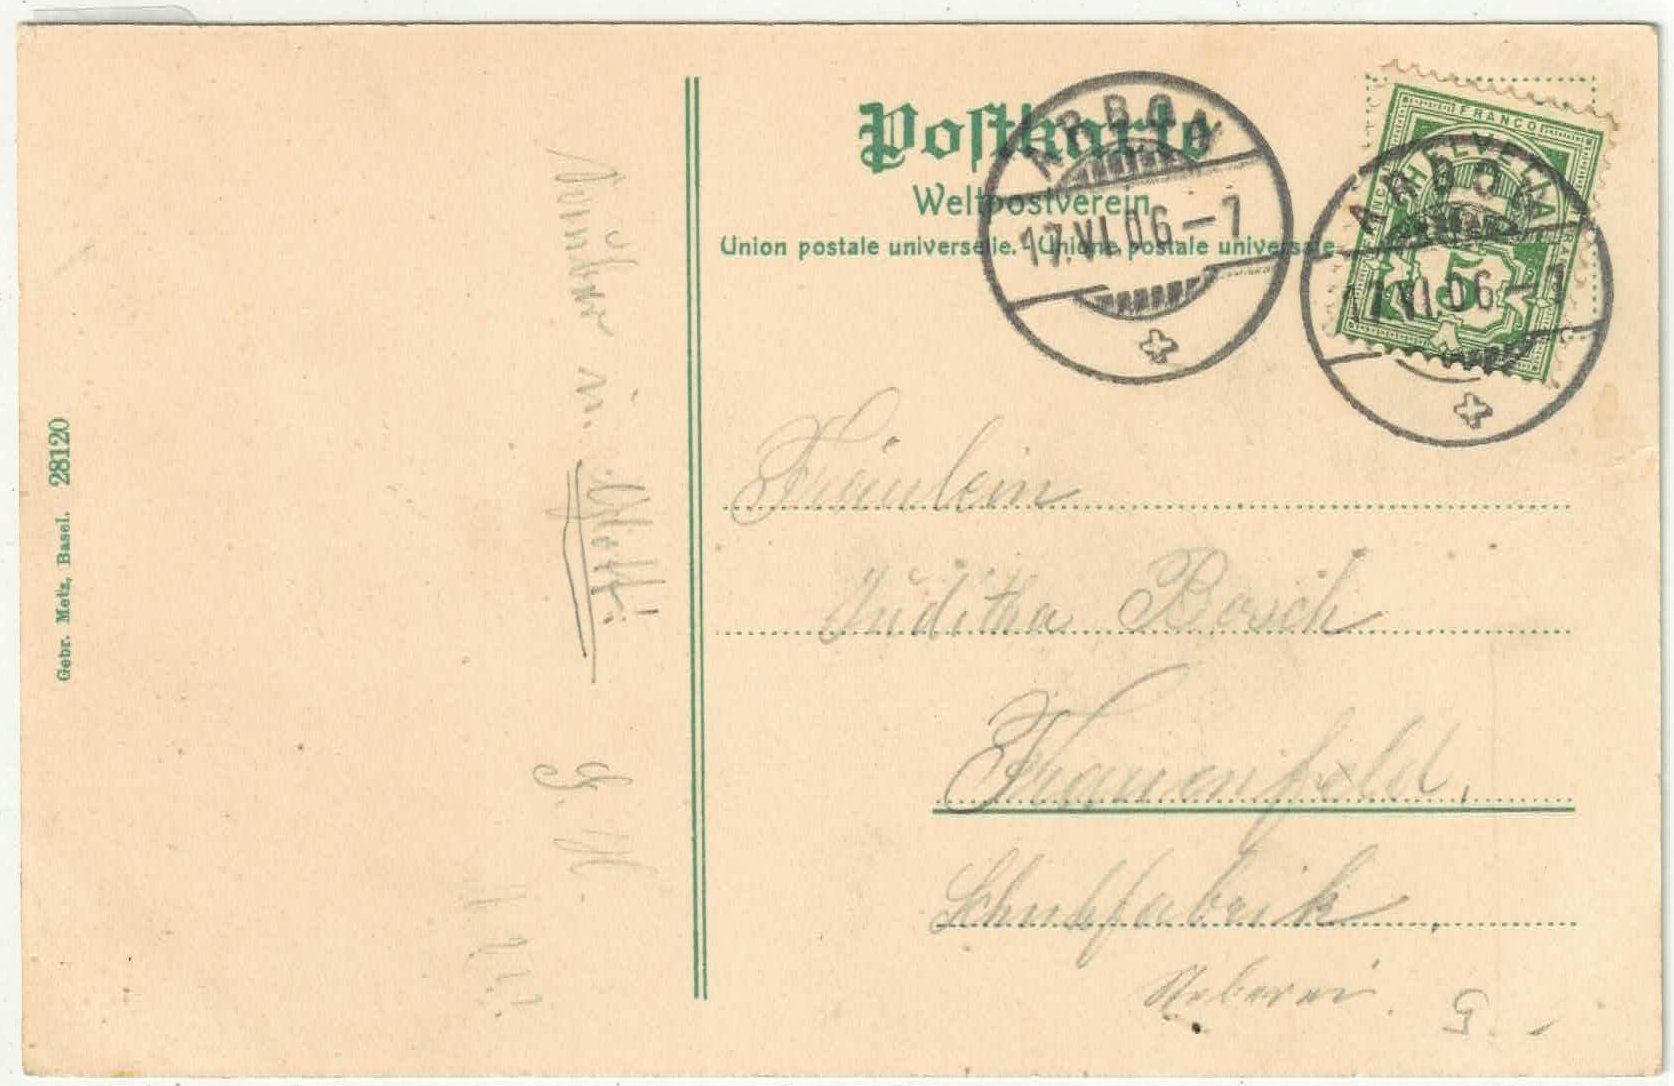 Postkarte
Weltpostverein
Union postale universelle. - Unione postale universale
ARBON
17.VI.06-7
FRANCO
HELVETIA
5
ARBON
17.VI.06-7
Fräulein
Juditha Bosch
Frauenfeld,
Schuhfabrik,
5
in
Gebr. Metz, Basel. 28120